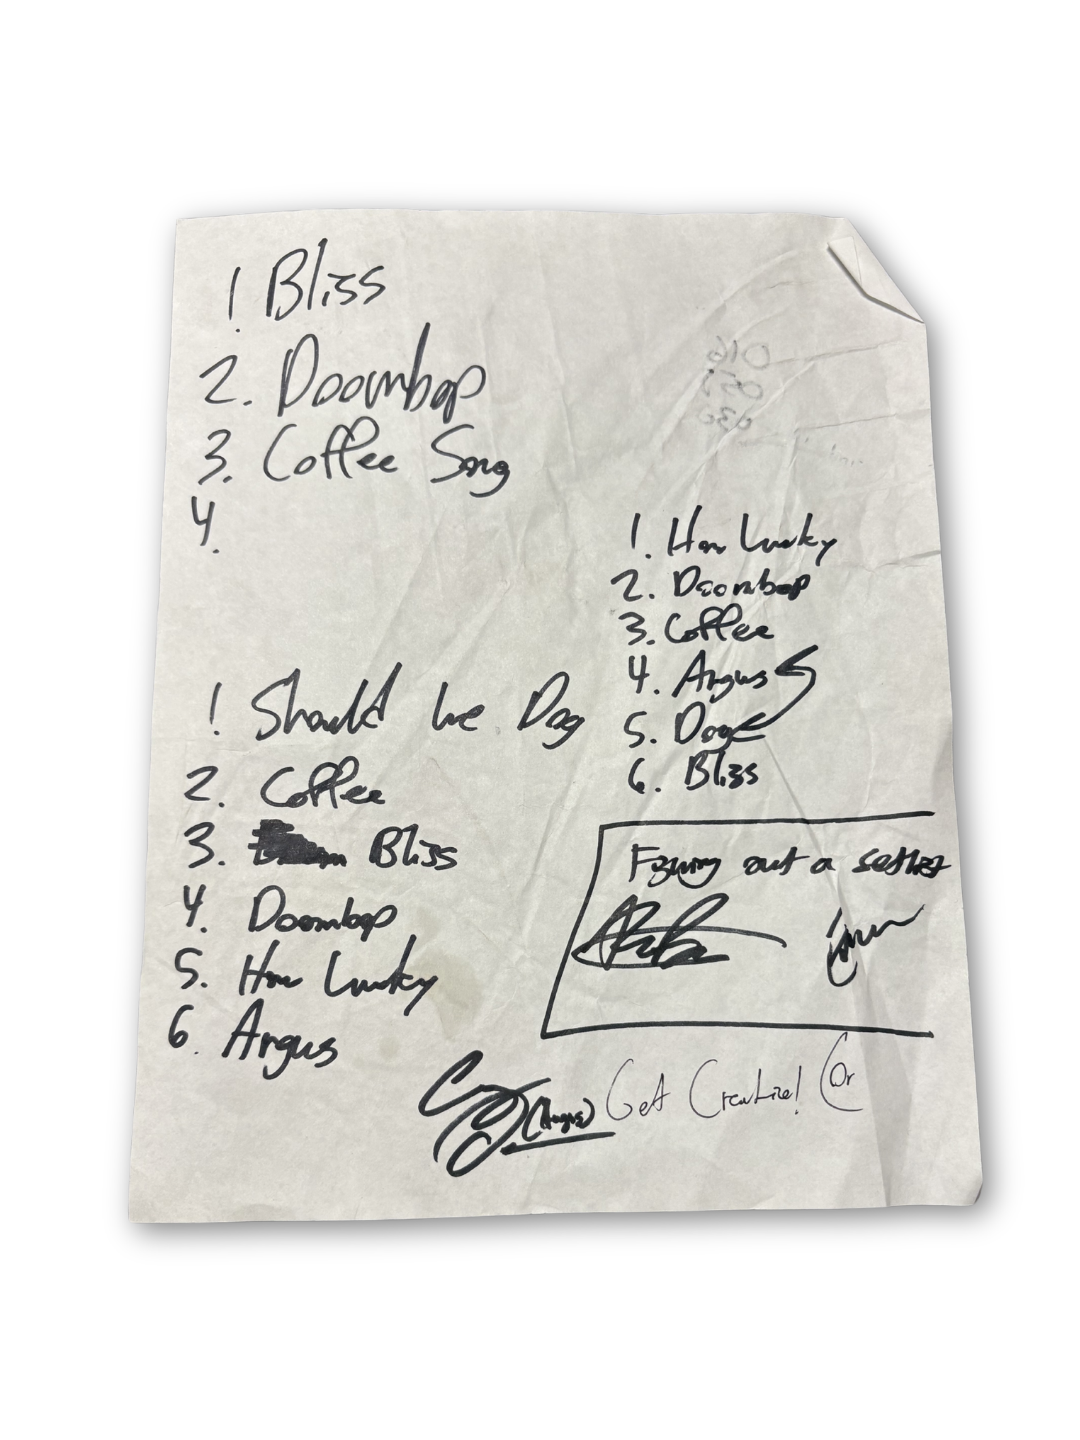 1. Bliss
2. Doombop
3. Coffee Song
4.
1. How Lucky
2. Doombop
3. Coffee
4. Angus
5. Dog
6. Bliss
1. Should We Dog
2. Coffee
3. Bliss
4. Doombop
5. How Lucky
6. Angus
Figuring out a setlist
(Angus)
Get Creative! Or